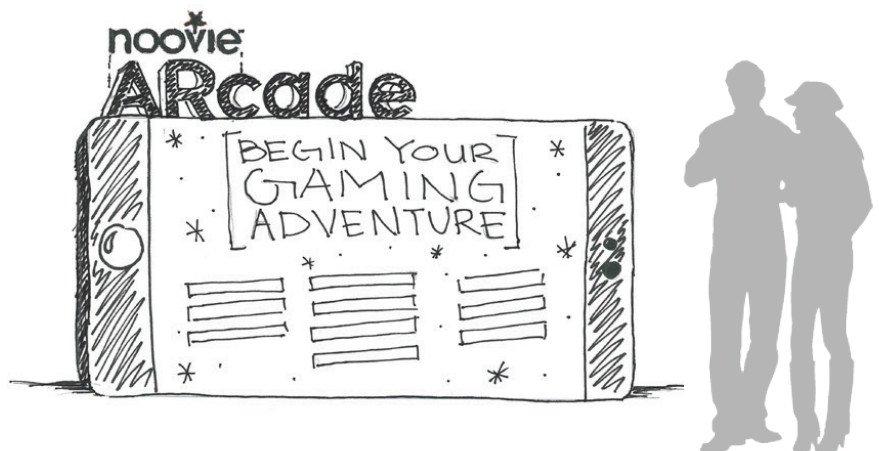 noovie
ARcade
BEGIN YOUR
GAMING
ADVENTURE